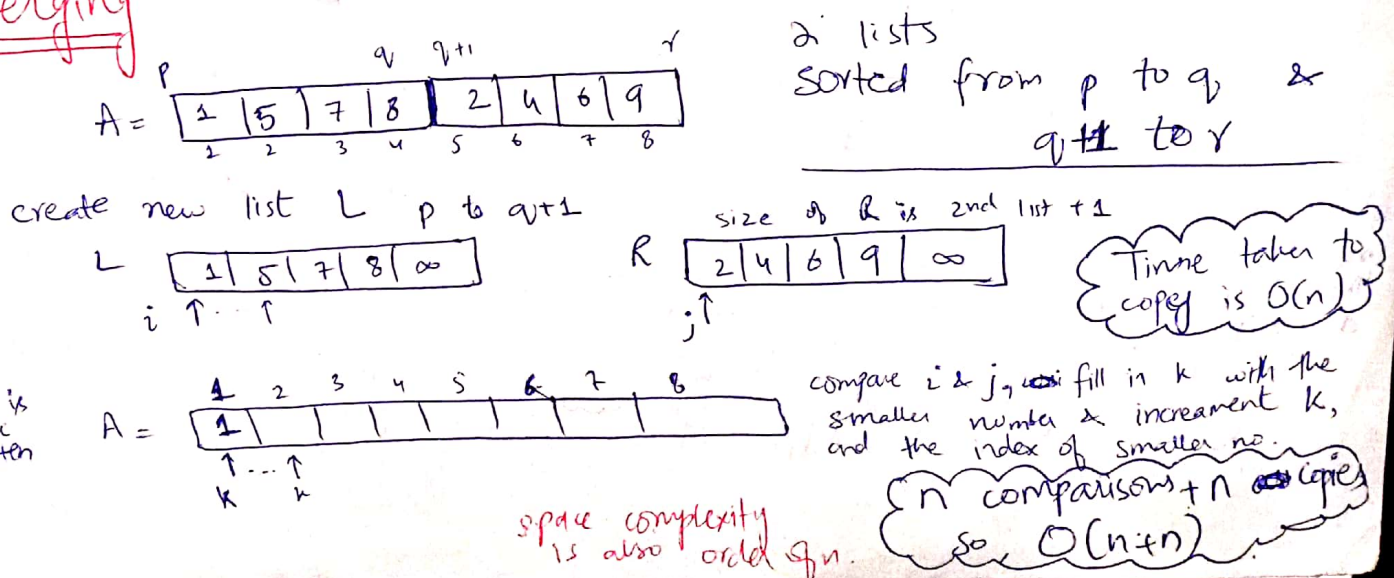 erging
p q q+1 r
A = 1 5 7 8 2 4 6 9
1 2 3 4 5 6 7 8
2 lists
sorted from p to q &
q+1 to r
create new list L p to q+1
L 1 5 7 8 ∞
i
size of R is 2nd list +1
R 2 4 6 9 ∞
j
Time taken to
copy is O(n)
is
ten
1 2 3 4 5 6 7 8
A = 1
k k
compare i & j, fill in k with the
smaller number & increament k,
and the index of smaller no.
n comparisons + n copies
so O(n+n)
space complexity
is also order of n.